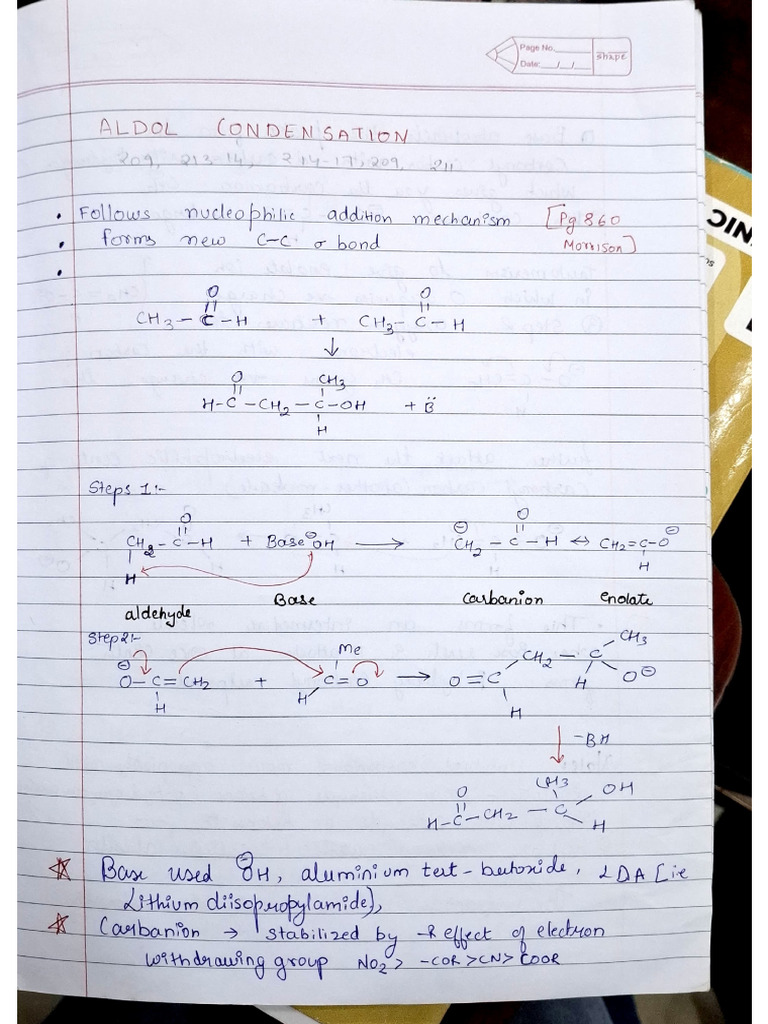 Page No.
Date: / /
shape
ALDOL CONDENSATION
209, 213-14, 214-17, 209, 211
• Follows nucleophilic addition mechanism [Pg 860
• forms new C-C σ bond Morrison]
•
O O
CH3 – C – H + CH3 – C – H
↓
O CH3
H-C – CH2 – C – OH + B̈
H
Steps 1:-
O ⊖ O ⊖
CH2 – C – H + Base ⊖OH ⟶ CH2 – C – H ↔ CH2=C-O
H H
aldehyde Base Carbanion enolate
Step 2:-
⊖ Me CH2 – C CH3
O – C = CH2 + C = O ⟶ O = C H O⊖
H H H
-BH
O CH3 OH
H – C – CH2 – C H
☆ Base used ⊖OH, aluminium tert-butoxide, LDA [i.e
Lithium diisopropylamide],
☆ Carbanion → stabilized by -R effect of electron
withdrawing group NO2 > -COR > CN > COOR
NIC